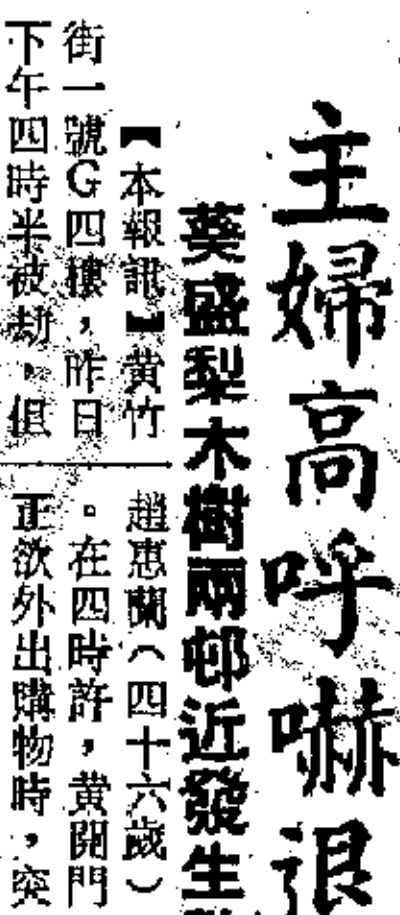 主婦高呼嚇退
葵盛梨木樹兩邨近發生
【本報訊】黃竹
街一號G四樓，昨日
下午四時半被劫，但
趙惠蘭（四十六歲）
。在四時許，黃開門
正欲外出購物時，突